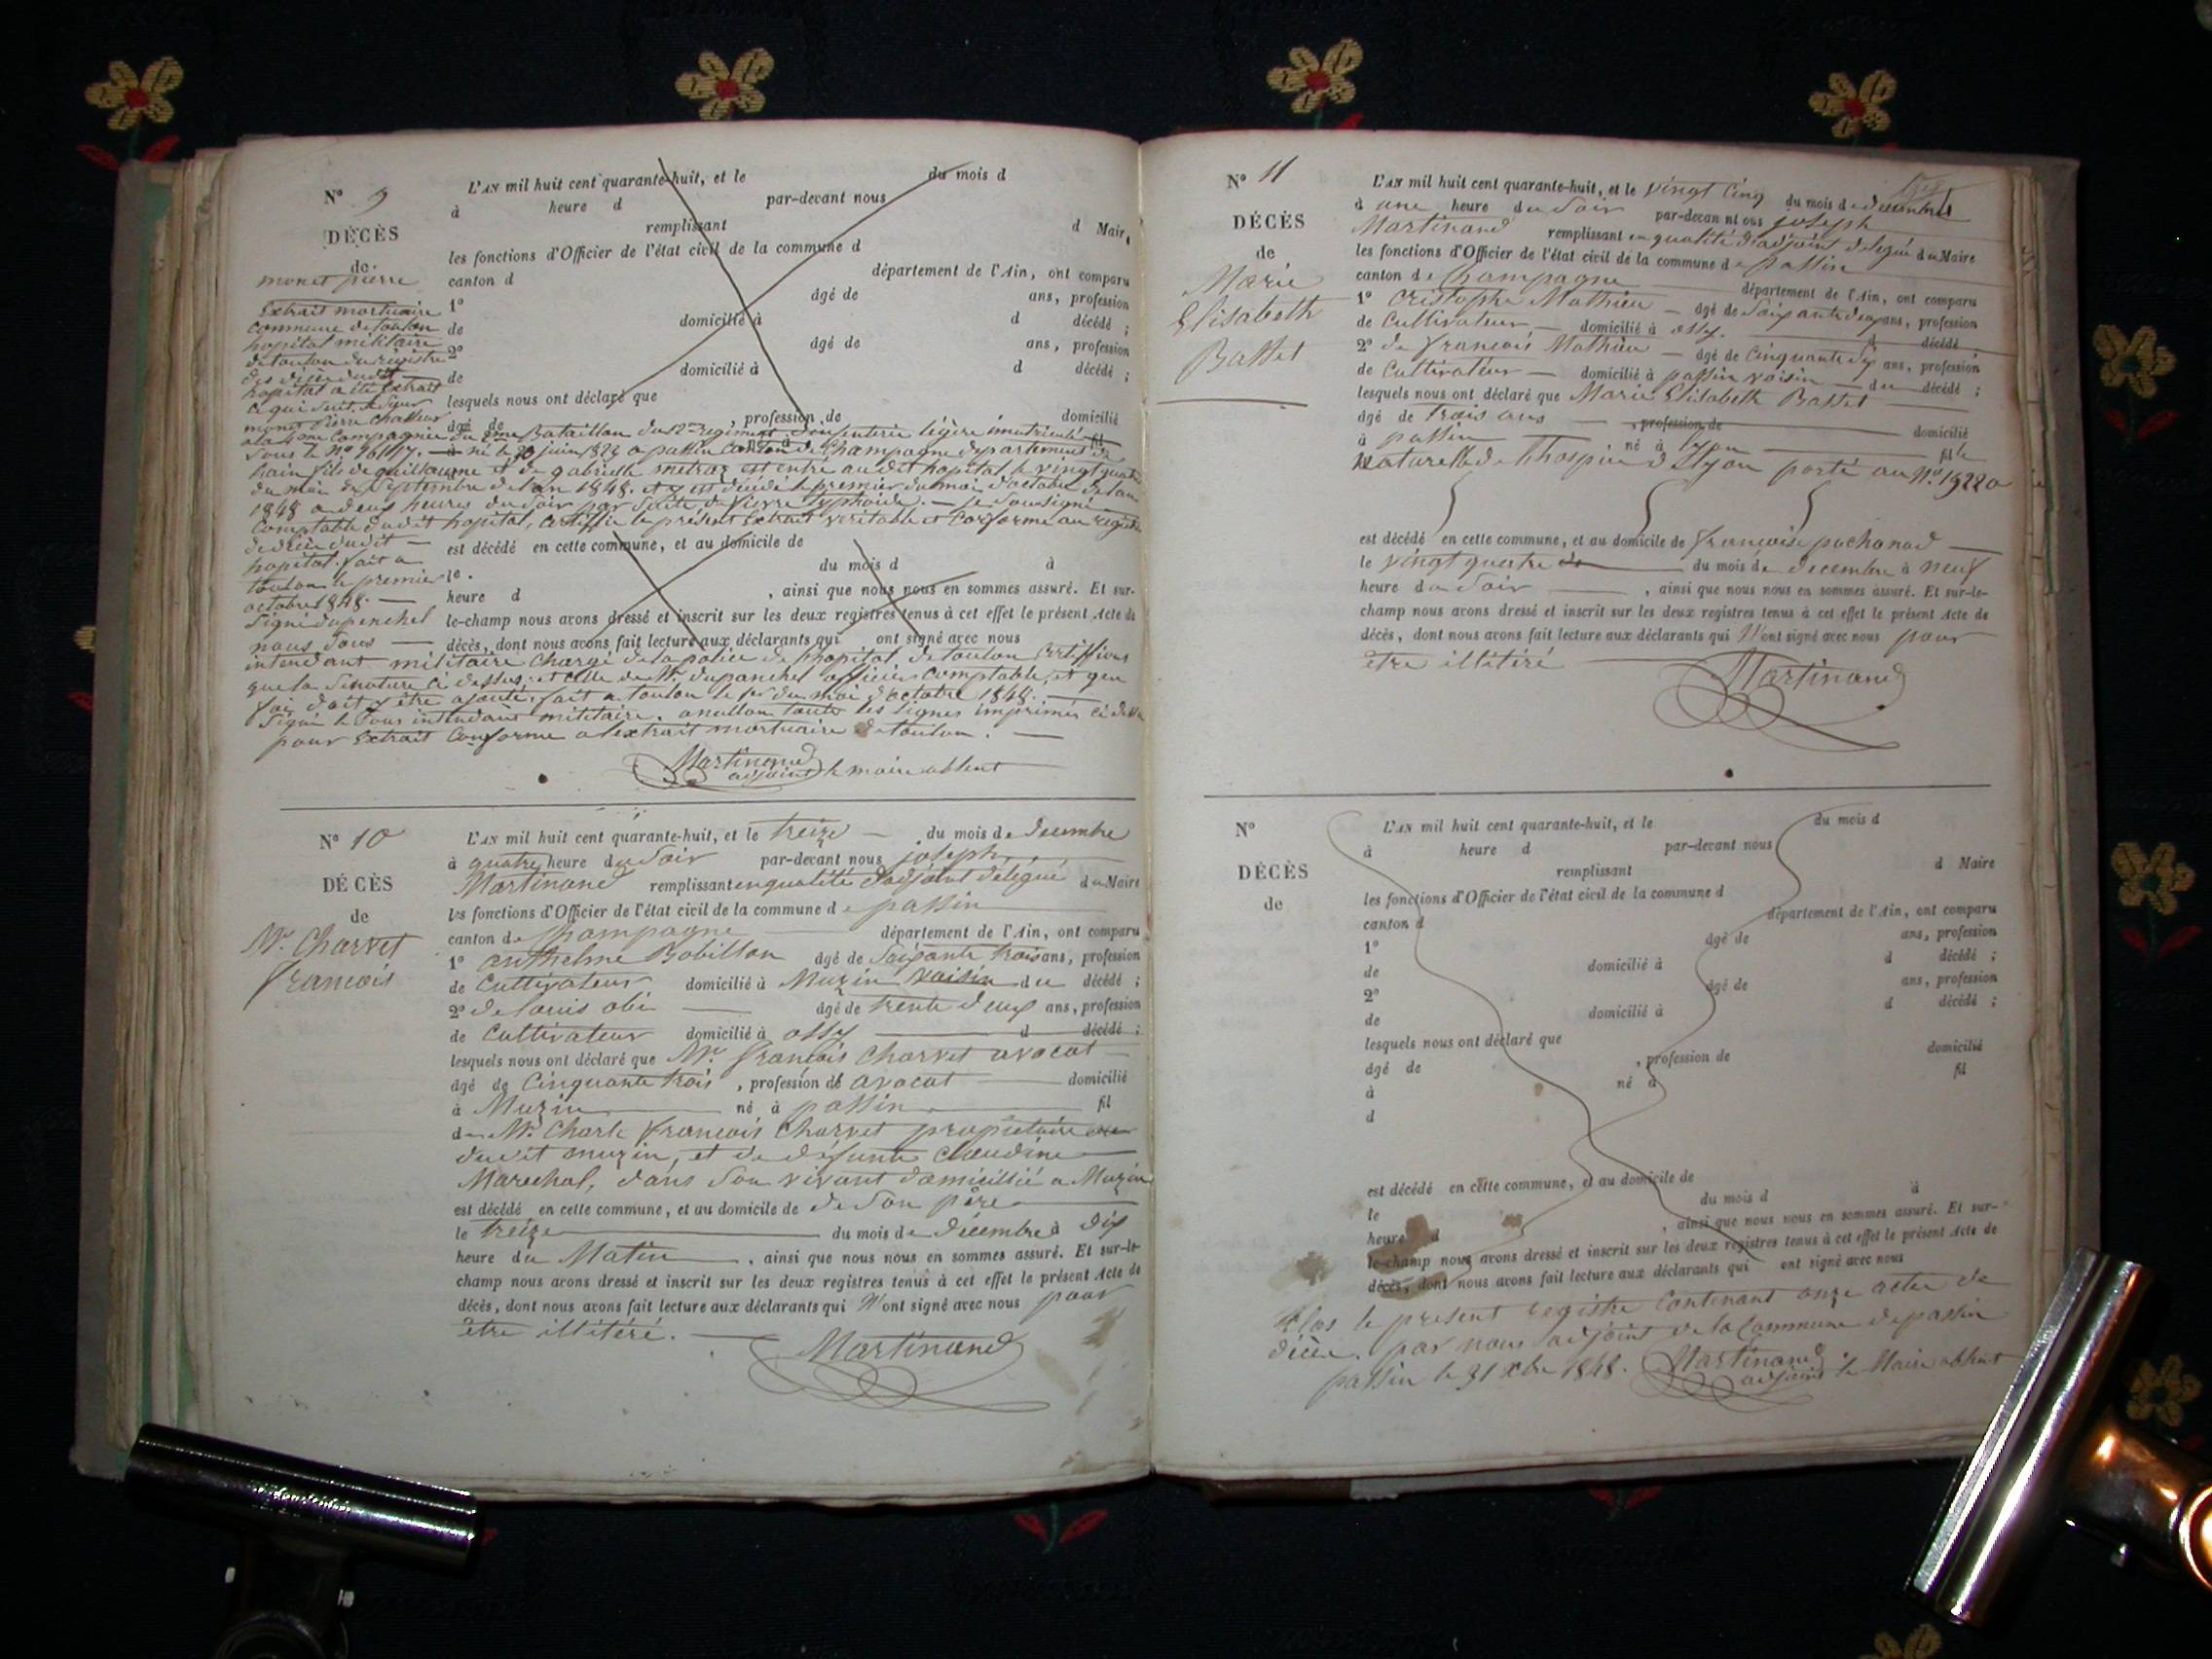 N° 9
DÉCÈS
de
monet pierre
L'AN mil huit cent quarante-huit, et le du mois d
à heure d par-devant nous
remplissant d Maire
les fonctions d'Officier de l'état civil de la commune d
canton d département de l'Ain, ont comparu
1° âgé de ans, profession
de domicilié à d décédé ;
2° âgé de ans, profession
de domicilié à d décédé ;
lesquels nous ont déclaré que
âgé de , profession de domicilié
Extrait mortuaire
commune de toulon
hopital militaire
de toulon du régistre
des décès dudit
hopital a été Extrait
ce qui suit, le sieur
monet Pierre Chasseur
a la 4me Compagnie du 2me Bataillon du 12e regiment d'infenterie légère imatriculé
sous le N° né le 20 juin 1823 a passin Canton de Champagne departement de
lain fils de guillaume et de gabrielle metraz est entré au dit hopital le vingt quatre
du moi de Septembre de lan 1848. et y est décédé le premier du moi d'octobre de lan
1848 a deux heures du soir par suite de fievre typhoïde. — je Soussigné
Comptable dudit hopital, certiffie le présent Extrait veritable et Conforme au registre
de décès dudit —
hopital. fait a
toulon le premier
octobre 1848. —
Signé dupenchel
nous Sous —
est décédé en cette commune, et au domicile de
le du mois d à
heure d , ainsi que nous nous en sommes assuré. Et sur-
le-champ nous avons dressé et inscrit sur les deux registres tenus à cet effet le présent Acte de
décès, dont nous avons fait lecture aux déclarants qui ont signé avec nous
intendant militaire Chargé de la police de l'hopital de toulon Certiffions
que la Sinature ci dessus, et celle de Mr. dupanchel officier Comptable, et que
foi doit y être ajouté, fait a toulon le 1er du moi d'octobre 1848. —
Signé le Sous intendant militaire. anullon toute les lignes imprimés ci dessu
pour Extrait Conforme a lextrait mortuaire de toulon. —
Martinand
adjoint le maire absent
N° 10
DÉCÈS
de
Mr. Charvet
francois
L'AN mil huit cent quarante-huit, et le treize — du mois de decembre
à quatre heure du Soir par-devant nous joseph
Martinand remplissant en qualité d'adjoint délégué du Maire
les fonctions d'Officier de l'état civil de la commune de passin
canton de Champagne département de l'Ain, ont comparu
1° anthelme Bobillon âgé de Soixante trois ans, profession
de Cultivateur domicilié à Muzin voisin du décédé ;
2° de louis obi — âgé de trente deux ans, profession
de Cultivateur domicilié à ossy — d décédé ;
lesquels nous ont déclaré que Mr. françois Charvet avocat —
âgé de Cinquante trois , profession de avocat — domicilié
à Muzin — né à passin — fil
de Mr. Charle francois Charvet propriétaire
dudit muzin, et de défunte claudine —
Marechal, dans Son vivant domicillié a Muzin
est décédé en cette commune, et au domicile de de Son père —
le treize — du mois de décembre à dix
heure du Matin — , ainsi que nous nous en sommes assuré. Et sur-le-
champ nous avons dressé et inscrit sur les deux registres tenus à cet effet le présent Acte de
décès, dont nous avons fait lecture aux déclarants qui N'ont signé avec nous pour
être illitéré. —
Martinand
N° 11
DÉCÈS
de
Marie
Elisabeth
Bassel
L'AN mil huit cent quarante-huit, et le vingt Cinq du mois de décembre
à une heure du Soir par-devant nous joseph
Martinand remplissant en qualité d'adjoint delegué du Maire
les fonctions d'Officier de l'état civil de la commune de passin
canton de Champagne — département de l'Ain, ont comparu
1° Cristophe Mathieu — âgé de Soixante dix ans, profession
de Cultivateur — domicilié à ossy. d décédé
2° de francois Mathieu — âgé de Cinquante dix ans, profession
de Cultivateur — domicilié à passin voisin — du décédé ;
lesquels nous ont déclaré que Marie Elisabeth Bassel
âgé de trois ans — , profession de domicilié
à passin né à lyon — fil le
Naturelle de lhospice de lyon porté au N° 19220
est décédé en cette commune, et au domicile de francoise pochonod —
le vingt quatre — du mois de decembre à neuf
heure du Soir — , ainsi que nous nous en sommes assuré. Et sur-le-
champ nous avons dressé et inscrit sur les deux registres tenus à cet effet le présent Acte de
décès, dont nous avons fait lecture aux déclarants qui N'ont signé avec nous pour
être illitéré —
Martinand
N°
DÉCÈS
de
L'AN mil huit cent quarante-huit, et le du mois d
à heure d par-devant nous
remplissant d Maire
les fonctions d'Officier de l'état civil de la commune d
canton d département de l'Ain, ont comparu
1° âgé de ans, profession
de domicilié à d décédé ;
2° âgé de ans, profession
de domicilié à d décédé ;
lesquels nous ont déclaré que
âgé de , profession de domicilié
à né à fil
d
est décédé en cette commune, et au domicile de
le du mois d à
heure d , ainsi que nous nous en sommes assuré. Et sur-
le-champ nous avons dressé et inscrit sur les deux registres tenus à cet effet le présent Acte de
décès, dont nous avons fait lecture aux déclarants qui ont signé avec nous
Clos le present registre Contenant onze actes de
décès. par nous adjoint de la Commune de passin
passin le 31 Xbre 1848. Martinand
adjoint le Maire absent